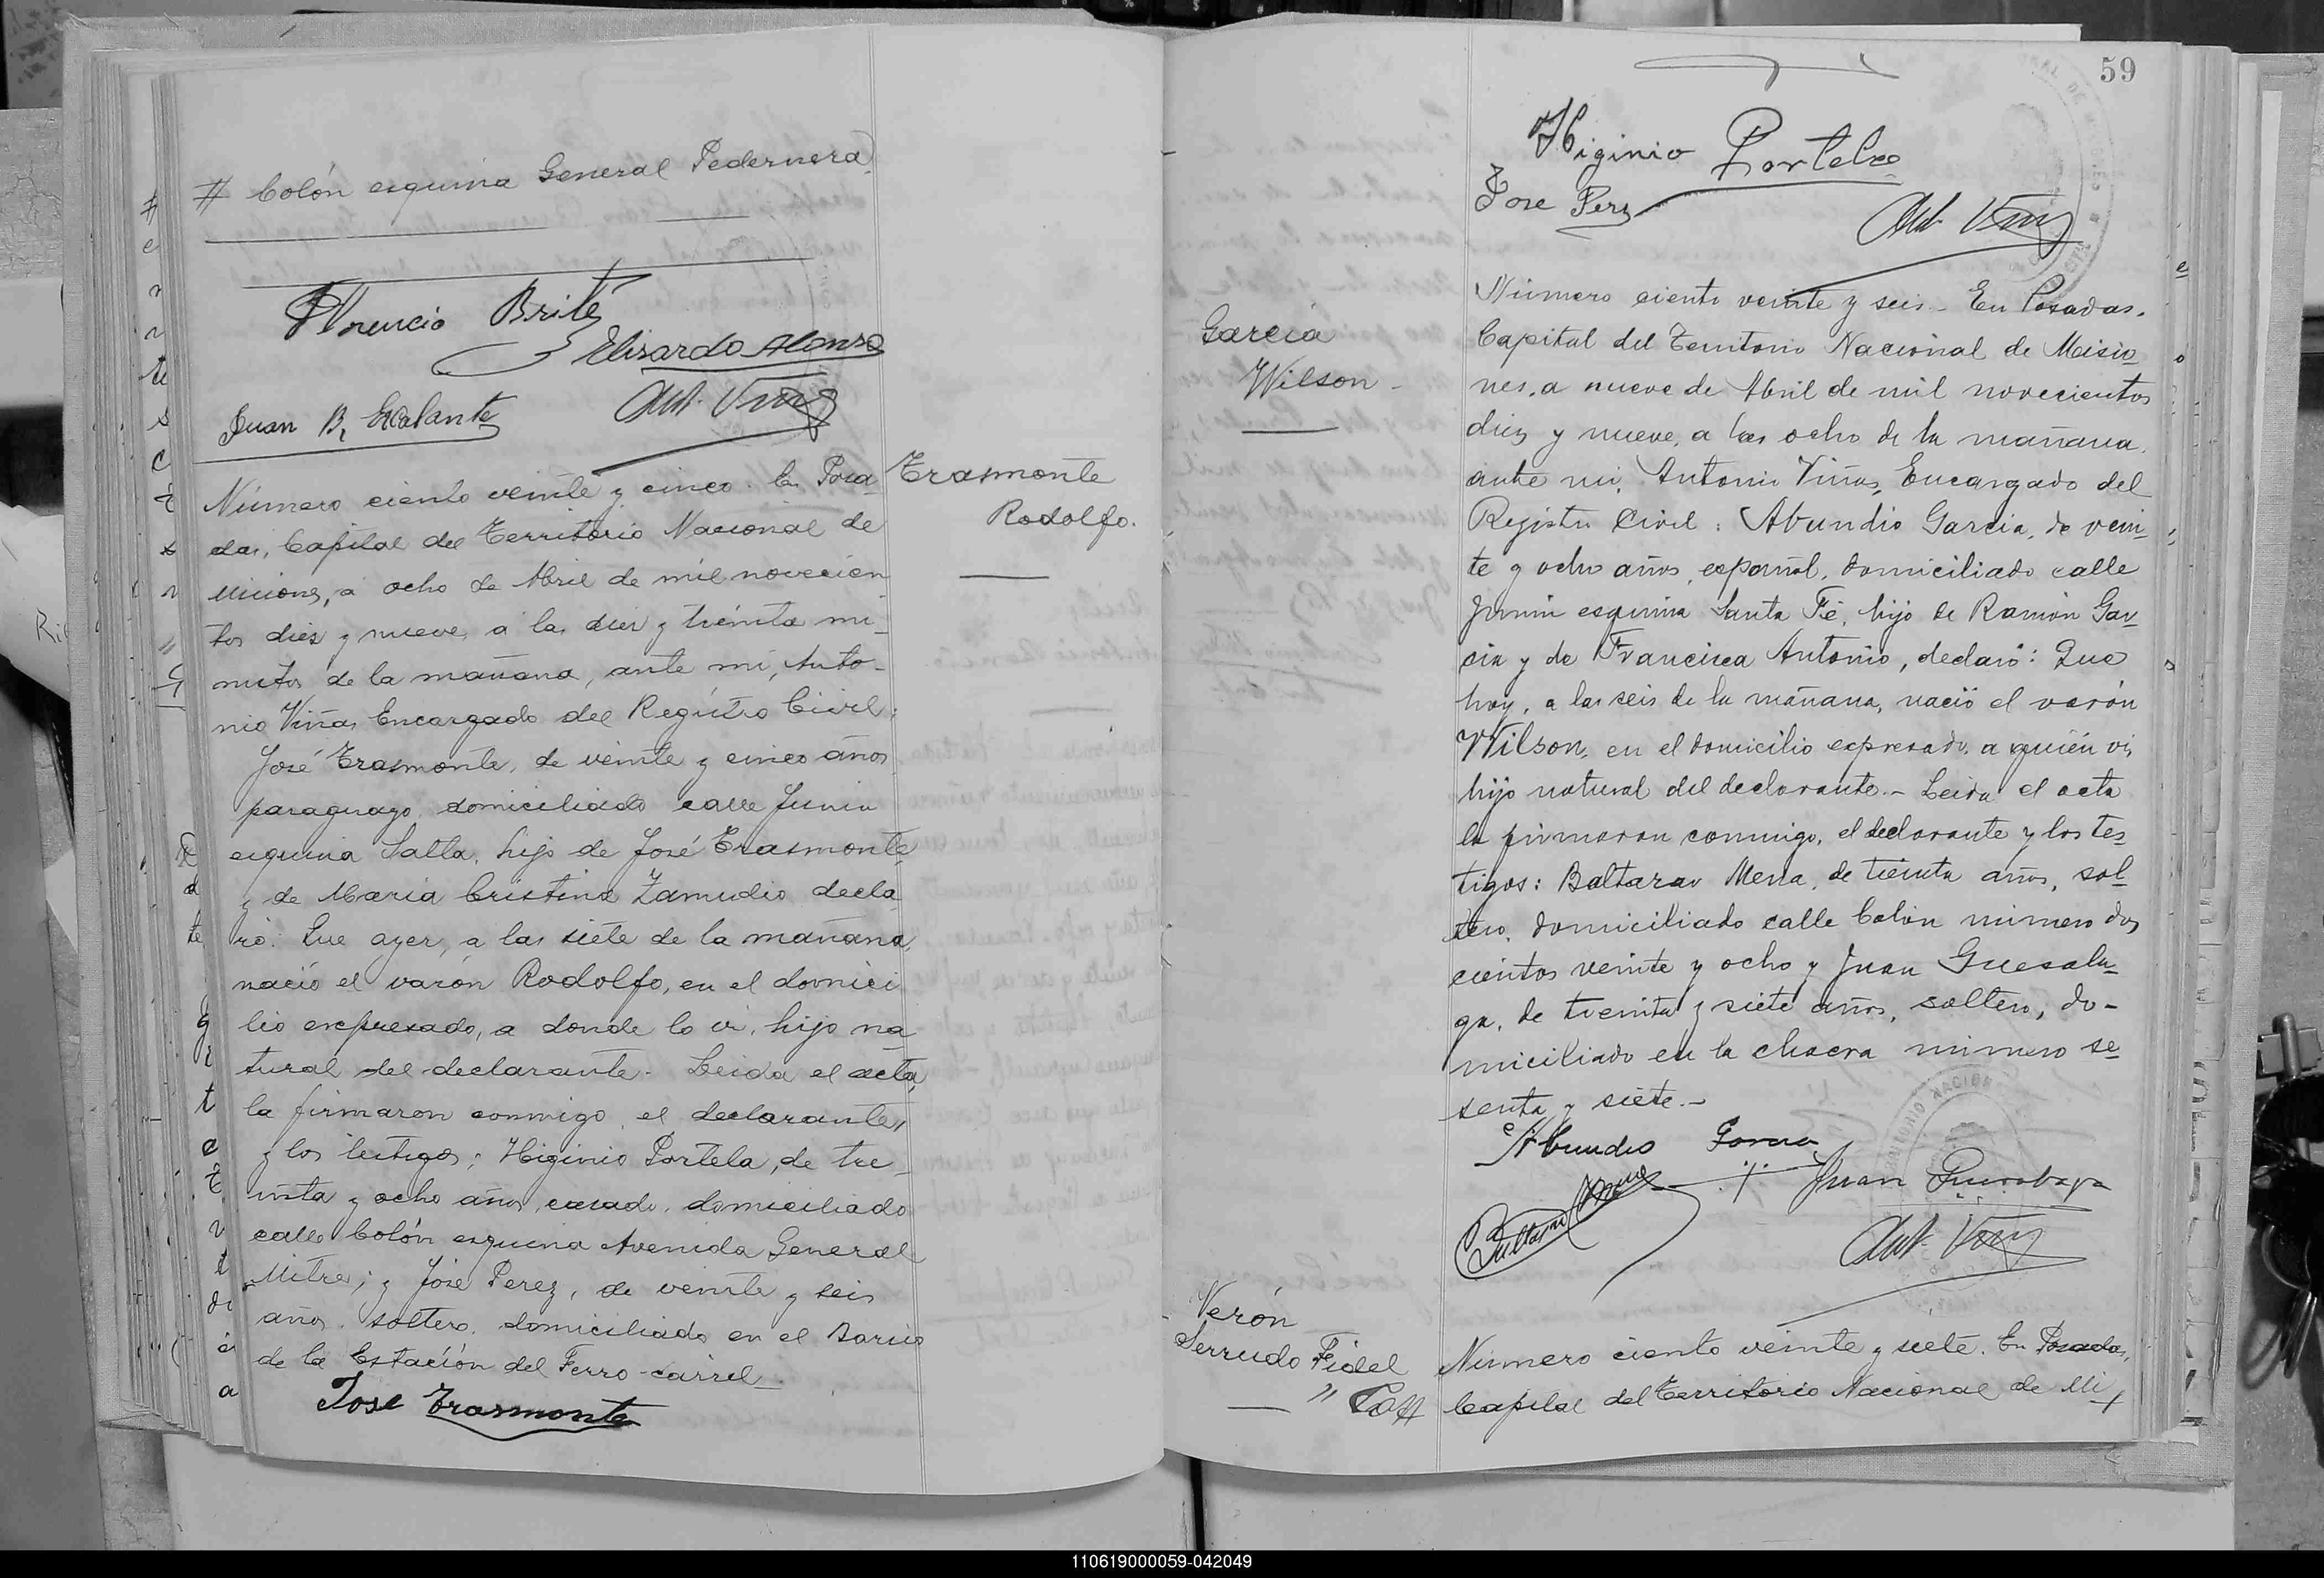 # Colón esquina General Pedernera
Florencio Brites
Elisardo Alonso
Juan B. Escalante
Ant. Viñas
Trasmonte
Rodolfo.
Número ciento veinte y cinco. En Posa
das, Capital del Territorio Nacional de
Misiones, a ocho de Abril de mil novecien
tos diez y nueve, a las diez y treinta mi-
nutos de la mañana, ante mí, Anto-
nio Viñas Encargado del Registro Civil:
José Trasmonte, de veinte y cinco años
paraguayo, domiciliado calle Junin
esquina Salta, hijo de José Trasmonte
y de Maria Cristina Zamudio decla
ró: Que ayer, a las siete de la mañana,
nació el varón Rodolfo, en el domici
lio expresado, a donde lo vi, hijo na
tural del declarante. Leida el acta
la firmaron conmigo, el declarante,
y los testigos: Higinio Portela, de tre-
inta y ocho años, casado, domiciliado
calle Colón esquina Avenida General
Mitre; y José Perez, de veinte y seis
años, soltero, domiciliado en el Barrio
de la Estación del Ferro-carril.
Jose Trasmonte
59
Higinio Portela
Jose Perez
Ant. Viñas
García
Wilson -
Número ciento veinte y seis.- En Posadas,
Capital del Territorio Nacional de Misio
nes, a nueve de Abril de mil novecientos
diez y nueve, a las ocho de la mañana,
ante mi, Antonio Viñas, Encargado del
Registro Civil: Abundio Garcia, de vein-
te y ocho años, español, domiciliado calle
Junin esquina Santa Fé, hijo de Ramón Gar-
cia y de Francisca Antonio, declaró: Que
hoy, a las seis de la mañana, nació el varón
Wilson, en el domicilio expresado, a quién vi,
hijo natural del declarante.- Leida el acta
la firmaron conmigo, el declarante y los tes-
tigos: Baltazar Mena, de treinta años, sol-
tero, domiciliado calle Colón número dos
cientos veinte y ocho y Juan Guesala-
ga, de treinta y siete años, soltero, do-
miciliado en la chacra número se
senta y siete.-
Abundio Garcia
Juan Guesalaga
Baltazar Mena
Ant. Viñas
Verón
Serrudo Fidel
" Cott
Número ciento veinte y siete. En Posadas,
Capital del Territorio Nacional de Mi
110619000059-042049